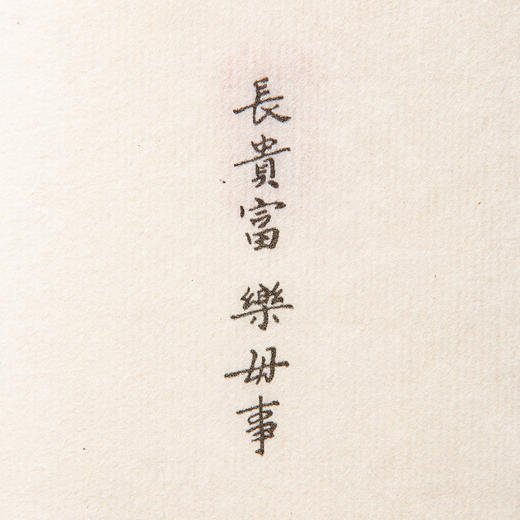 長貴富 樂毋事